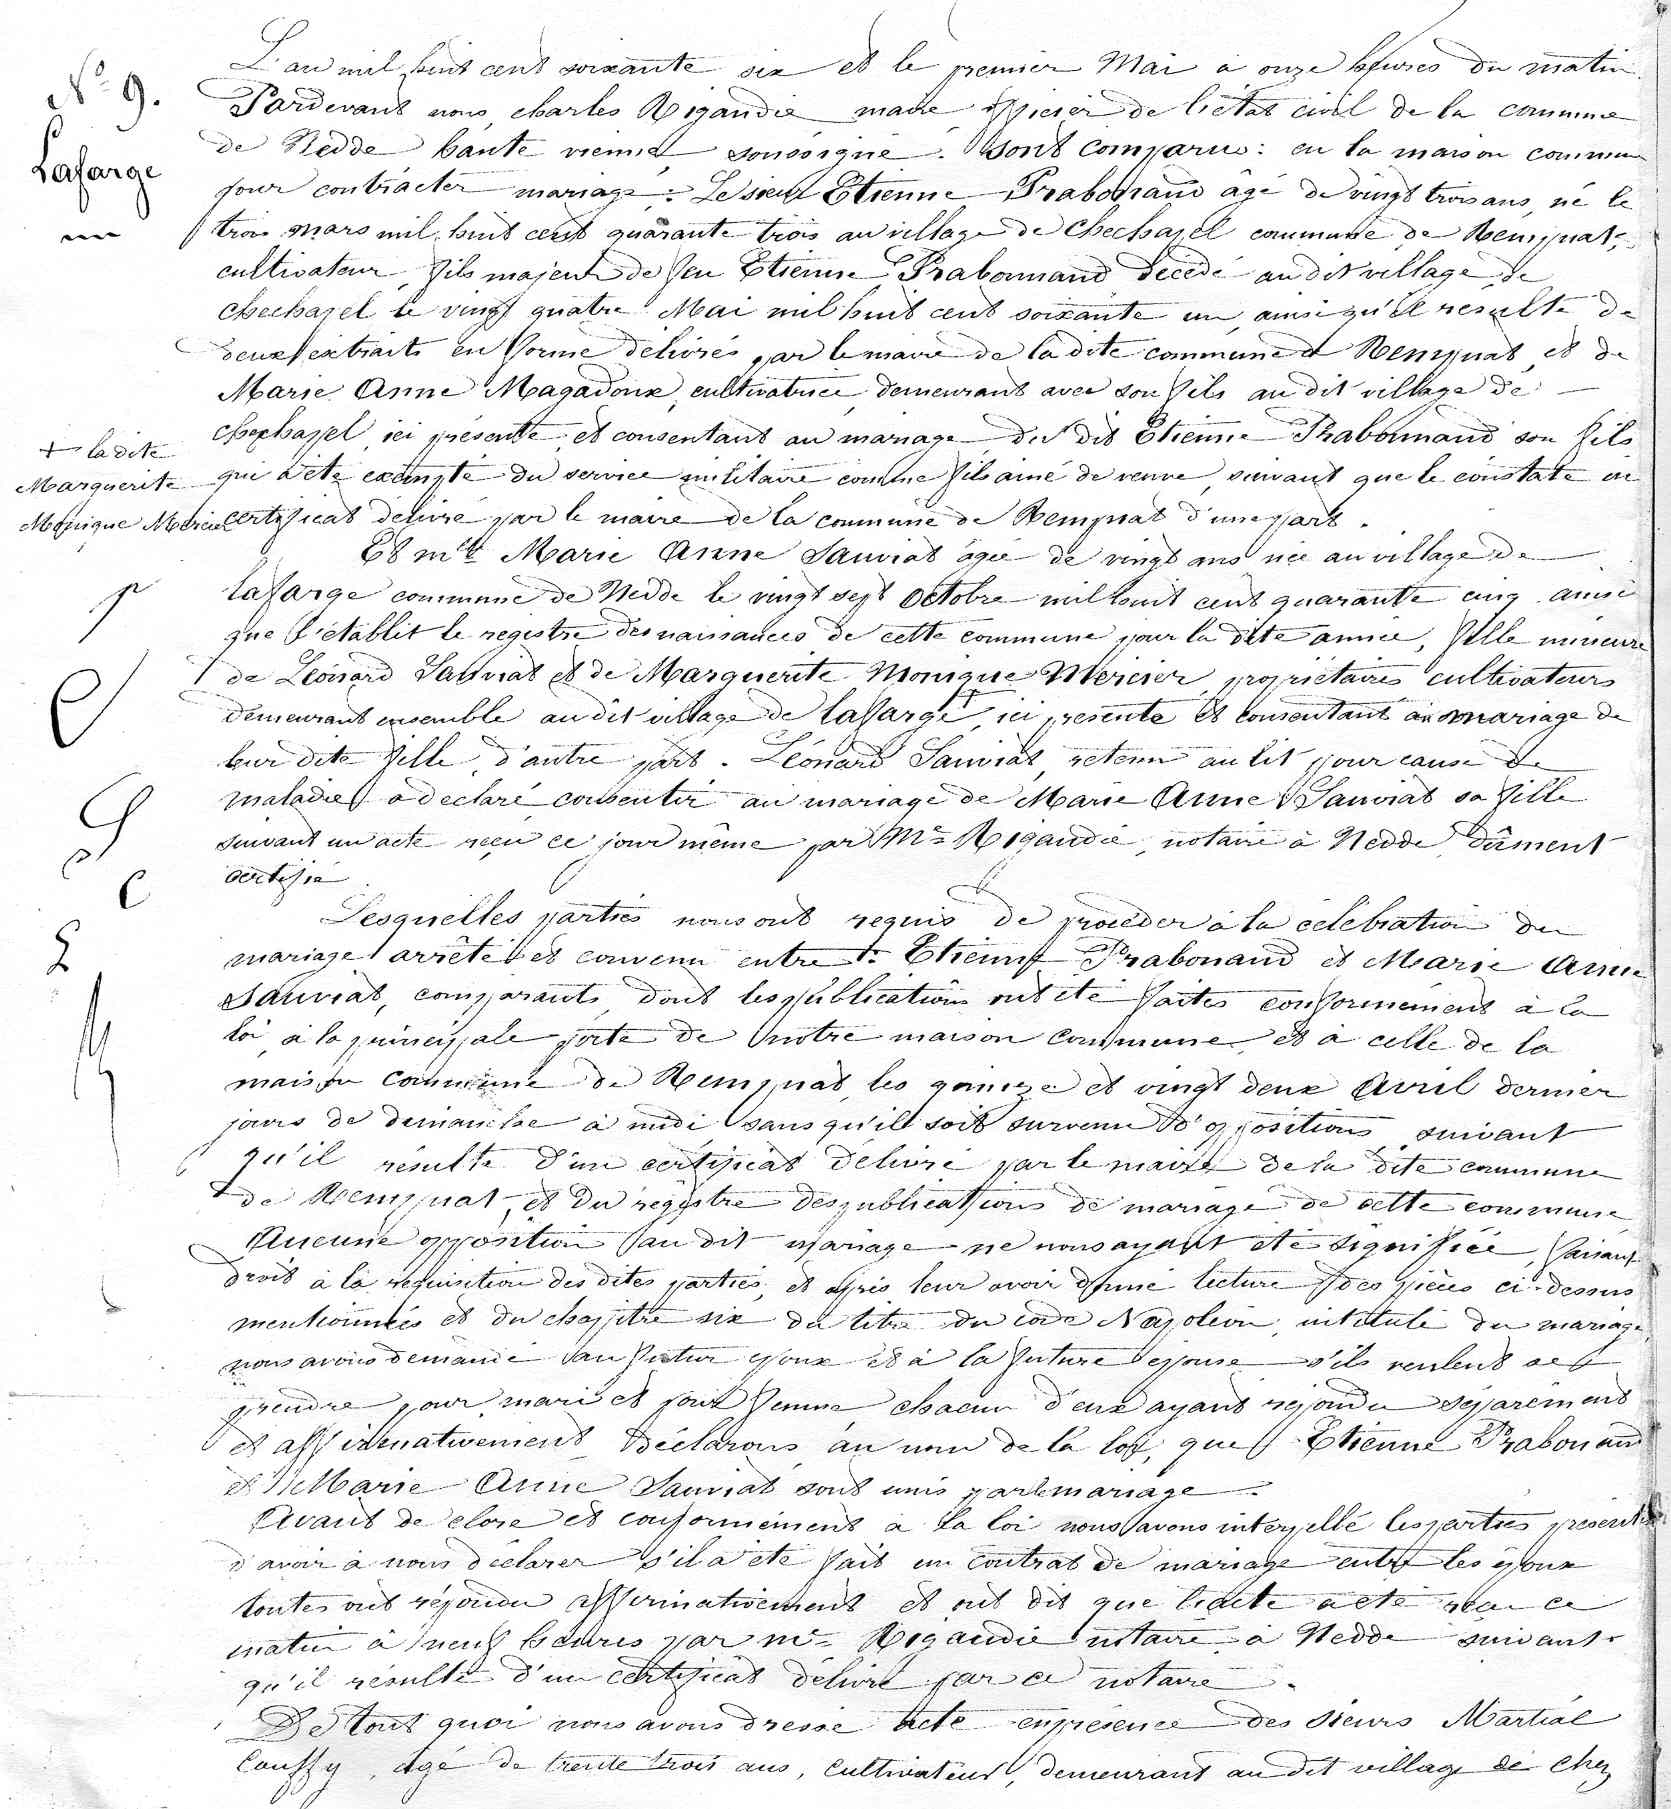 N° 9.
Lafarge
L'an mil huit cent soixante six et le premier Mai à onze heures du matin.
Pardevant nous, charles Rigaudie maire officier de l'état civil de la commune
de Nedde haute vienne soussigné. Sont comparus: en la maison commune
pour contracter mariage: Le sieur Etienne Prabonnaud âgé de vingt trois ans, né le
trois mars mil huit cent quarante trois au village de Chechazel commune de Rempnat,
cultivateur, fils majeur de feu Etienne Prabonnaud décédé au dit village de
chechazel le vingt quatre Mai mil huit cent soixante un, ainsi qu'il résulte de
deux extraits en forme délivrés par le maire de la dite commune de Rempnat, et de
Marie Anne Magadoux, cultivatrice, demeurant avec son fils au dit village de
chechazel, ici présente, et consentant au mariage du dit Etienne Prabonnaud son fils
qui a été exempté du service militaire comme fils ainé de veuve, suivant que le constate un
certificat délivré par le maire de la commune de Rempnat d'une part.
+ la dite
Marguerite
Monique Mercier
Et mlle Marie Anne Sauviat âgée de vingt ans née au village de
lafarge commune de Nedde le vingt sept Octobre mil huit cent quarante cinq ainsi
que l'établit le registre des naissances de cette commune pour la dite année, fille mineure
de Léonard Sauviat et de Marguerite Monique Mercier, propriétaires cultivateurs
demeurant ensemble au dit village de lafarge, + ici présente et consentant au mariage de
leur dite fille, d'autre part. Léonard Sauviat, retenu au lit pour cause de
maladie, a déclaré consentir au mariage de Marie Anne Sauviat sa fille
suivant un acte reçu ce jour même par Me Rigaudie, notaire à Nedde, dûment
certifié
Lesquelles parties nous ont requis de procéder à la célébration du
mariage arrêté et convenu entre Etienne Prabonaud et Marie Anne
Sauviat, comparants, dont les publications ont été faites conformément à la
loi, à la principale porte de notre maison commune, et à celle de la
maison commune de Rempnat, les quinze et vingt deux Avril dernier
jours de dimanche à midi sans qu'il soit survenu d'oppositions, suivant
qu'il résulte d'un certificat délivré par le maire de la dite commune
de Rempnat, et du régistre des publications de mariage de cette commune
Aucune opposition au dit mariage ne nous ayant été signifiée, faisant
droit à la réquisition des dites parties, et après leur avoir donné lecture des pièces ci-dessus
mentionnées et du chapitre six du titre du code Napoléon, intitulé du mariage,
nous avons demandé au futur époux et à la future épouse s'ils veulent se
prendre pour mari et pour femme, chacun d'eux ayant répondu séparément
et affirmativement, Déclarons, au nom de la loi, que Etienne Prabonaud
et Marie Anne Sauviat sont unis par le mariage.
Avant de clore et conformément à la loi nous avons interpellé les parties présentes
d'avoir à nous déclarer s'il a été fait un contrat de mariage entre les époux
toutes ont répondu affirmativement et ont dit que l'acte a été reçu ce
matin à neuf heures par me Rigaudie notaire à Nedde suivant
qu'il résulte d'un certificat délivré par ce notaire.
De tout quoi nous avons dressé acte en présence des sieurs Martial
Couffy, âgé de trente trois ans, cultivateur, demeurant au dit village de chez